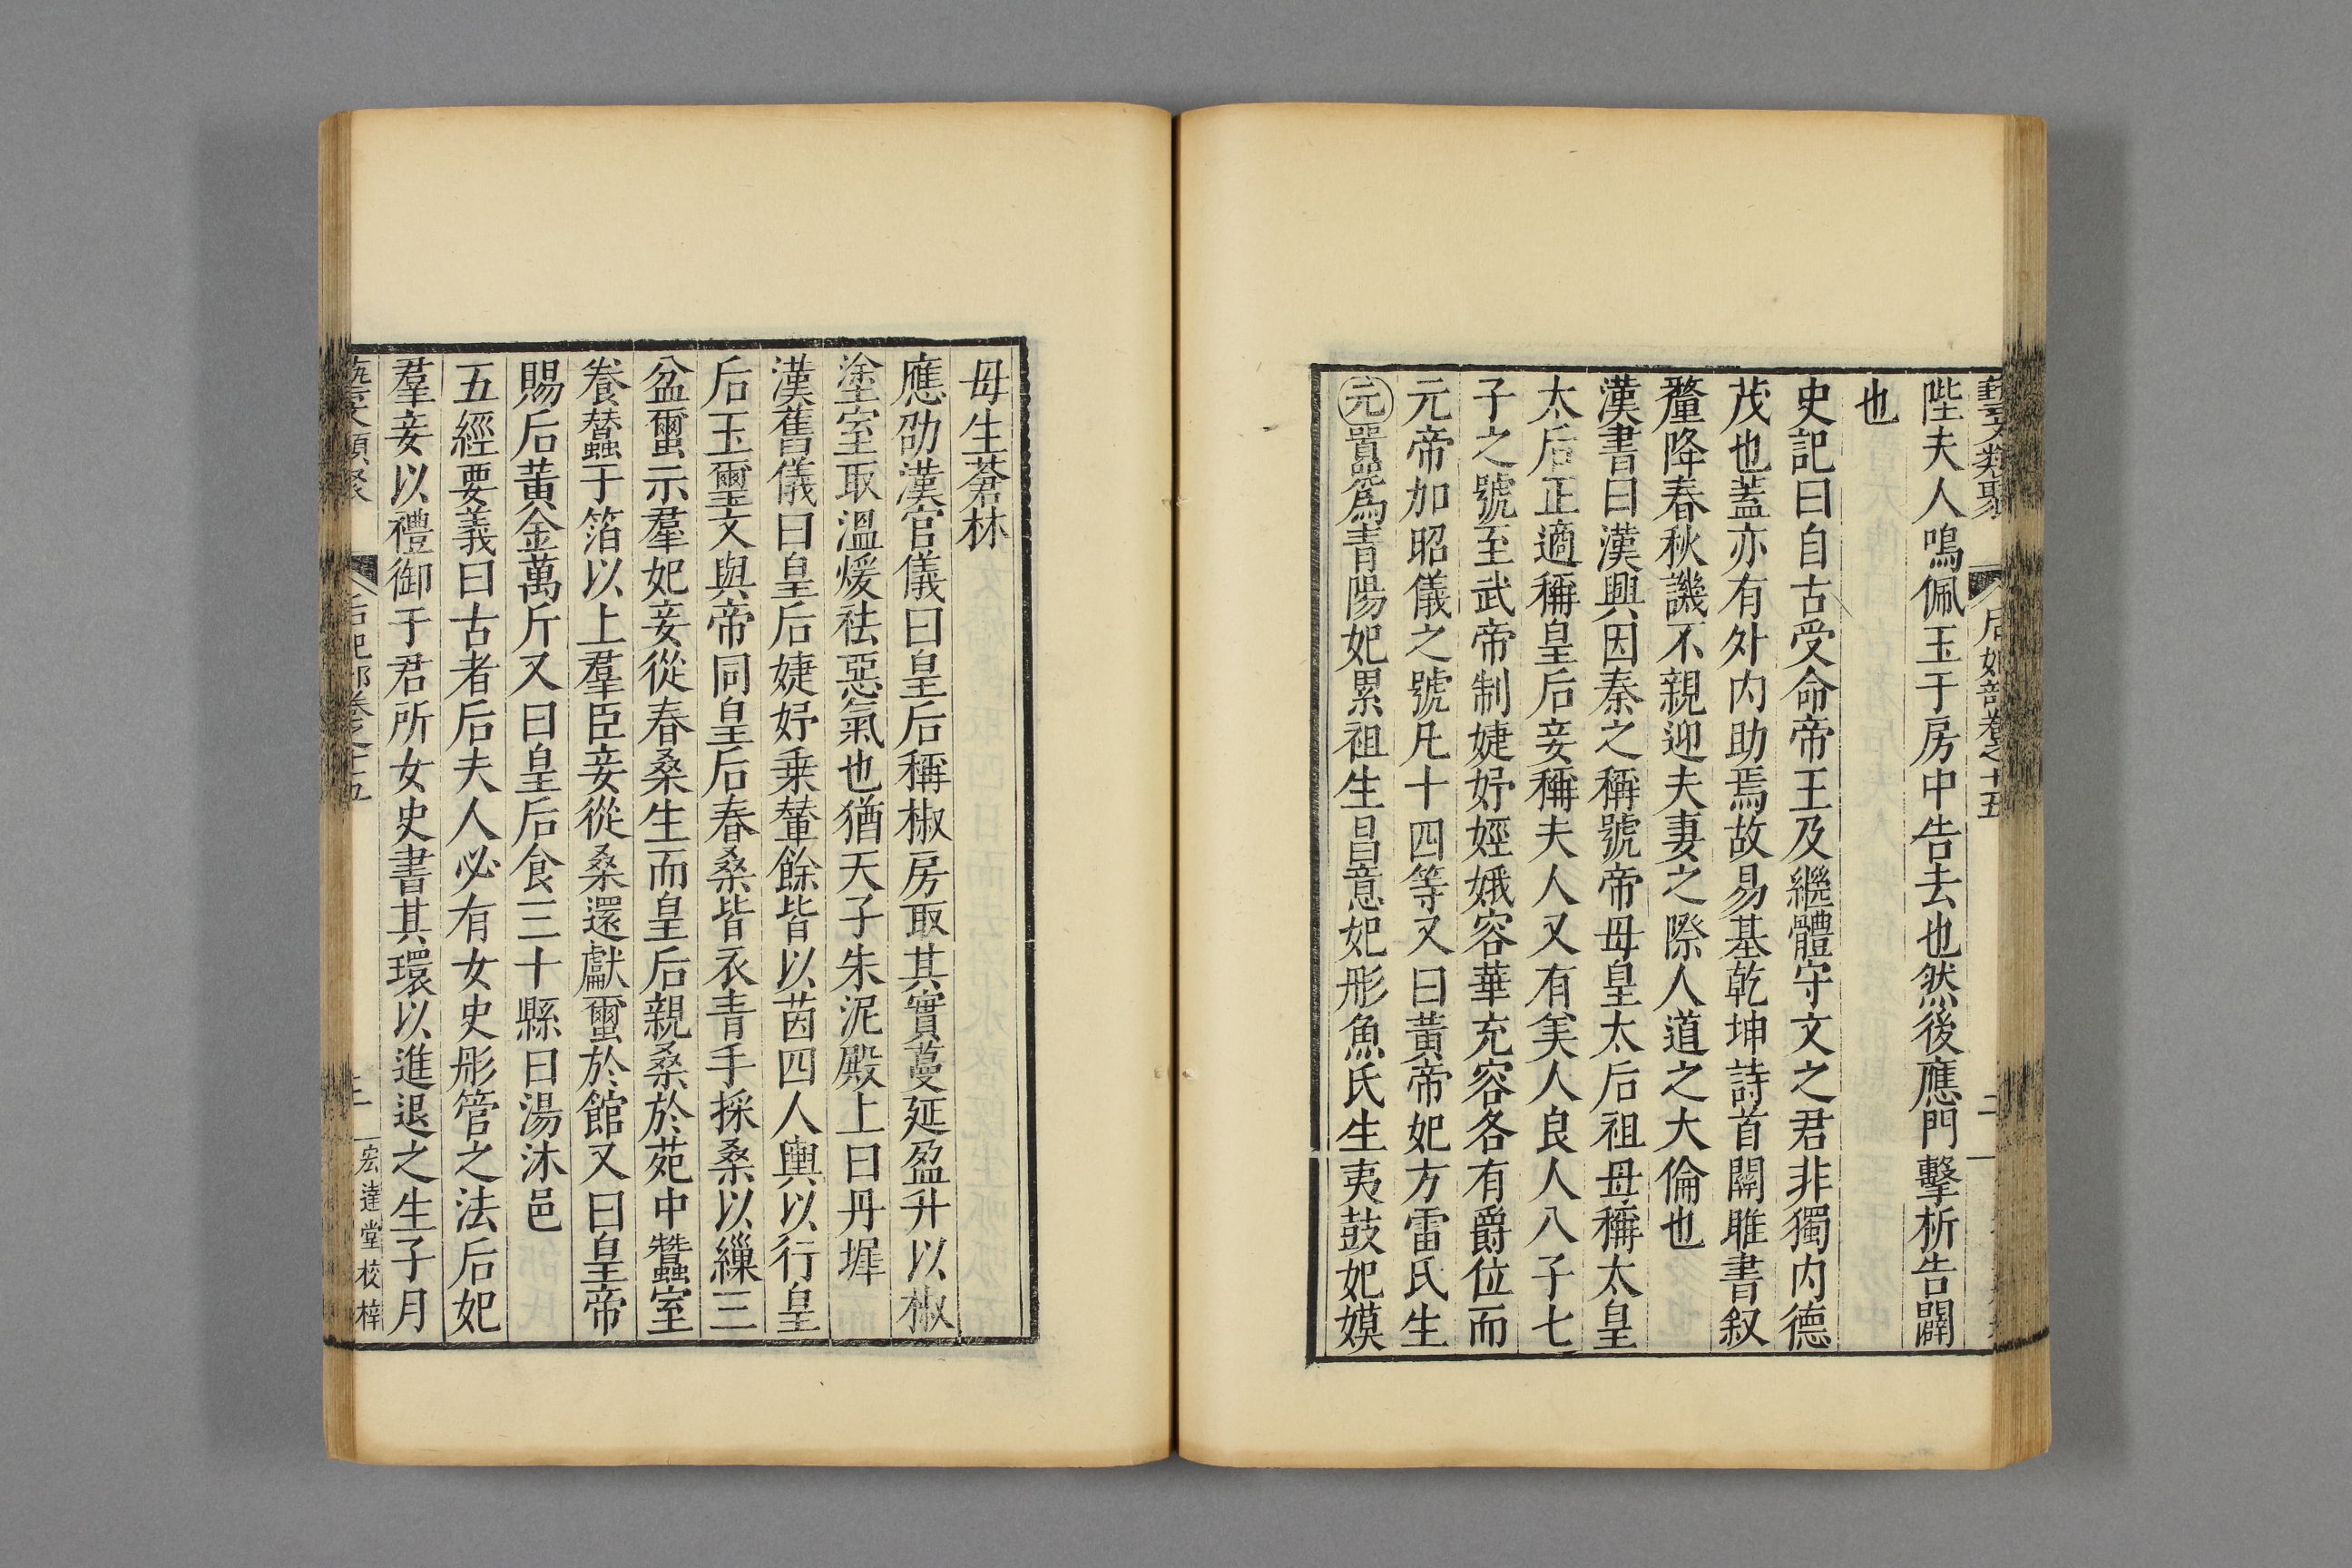 藝文類聚 后妃部卷之十五 二
陛夫人鳴佩玉于房中告去也然後應門擊柝告闢
也
史記曰自古受命帝王及繼體守文之君非獨內德
茂也蓋亦有外內助焉故易基乾坤詩首關雎書叙
釐降春秋譏不親迎夫妻之際人道之大倫也
漢書曰漢興因秦之稱號帝母皇太后祖母稱太皇
太后正適稱皇后妾稱夫人又有美人良人八子七
子之號至武帝制婕妤娙娥容華充容各有爵位而
元帝加昭儀之號凡十四等又曰黃帝妃方雷氏生
元囂爲青陽妃累祖生昌意妃彤魚氏生夷鼓妃嫫
母生蒼林
應劭漢官儀曰皇后稱椒房取其實蔓延盈升以椒
塗室取溫煖祛惡氣也猶天子朱泥殿上曰丹墀
漢舊儀曰皇后婕妤乗輦餘皆以茵四人輿以行皇
后玉璽文與帝同皇后春桑皆衣青手採桑以繅三
盆蠒示羣妃妾從春桑生而皇后親桑於苑中蠶室
養蠶于箔以上羣臣妾從桑還獻蠒於館又曰皇帝
賜后黃金萬斤又曰皇后食三十縣曰湯沐邑
五經要義曰古者后夫人必有女史彤管之法后妃
羣妾以禮御于君所女史書其環以進退之生子月
藝文類聚 后妃部卷之十五 宏達堂校梓